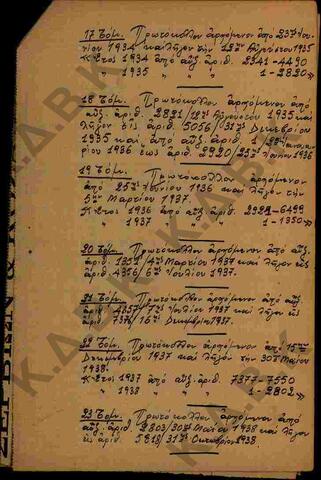 17 Τόμ. Πρωτόκολλον ἀρχόμενον ἀπὸ 23ης Ἰου-
νίου 1934 καὶ λῆγον τὴν 12ην Αὐγούστου 1935
Κ. ἔτος 1934 ἀπὸ αὔξ. ἀριθ. 2341-4490
" 1935 " " 1-2820
18 Τόμ. Πρωτόκολλον ἀρχόμενον ἀπὸ
αὔξ. ἀριθ. 2821/12ης Αὐγούστου 1935 καὶ
λῆγον εἰς ἀριθ. 5056/31ης Δεκεμβρίου
1935 καὶ ἀπὸ αὔξ. ἀριθ. 1/2
αρίου 1936 ἕως ἀριθ. 2920/25ης Ἰουνίου 1936
19 Τόμ. Πρωτόκολλον ἀρχόμενον
ἀπὸ 25ης Ἰουνίου 1936 καὶ λῆγον τὴν
5ην Μαρτίου 1937.
Κ. ἔτος 1936 ἀπὸ αὔξ. ἀριθ. 2921-6499
" 1937 " " 1-1350
20 Τόμ. Πρωτόκολλον ἀρχόμενον ἀπὸ αὔξ.
ἀριθ. 1351/4ης Μαρτίου 1937 καὶ λῆγον εἰς
ἀριθ. 4356/6ης Ἰουλίου 1937.
21 Τόμ. Πρωτόκολλον ἀρχόμενον ἀπὸ αὔξ.
ἀριθ. 4357/7ης Ἰουλίου 1937 καὶ λῆγον εἰς
ἀριθ. 7376/16ης Δεκεμβρίου 1937.
22 Τόμ. Πρωτόκολλον ἀρχόμενον ἀπὸ 15ης
Δεκεμβρίου 1937 καὶ λῆγον τὴν 30ην Μαΐου
1938.
Κ. ἔτος 1937 ἀπὸ αὔξ. ἀριθ. 7377-7550
" 1938 " " 1-2802
23 Τόμ. Πρωτόκολλον ἀρχόμενον ἀπὸ
αὔξ. ἀριθ. 2803/30ης Μαΐου 1938 καὶ λῆγον
εἰς ἀριθ. 5818/31ης Ὀκτωβρίου 1938